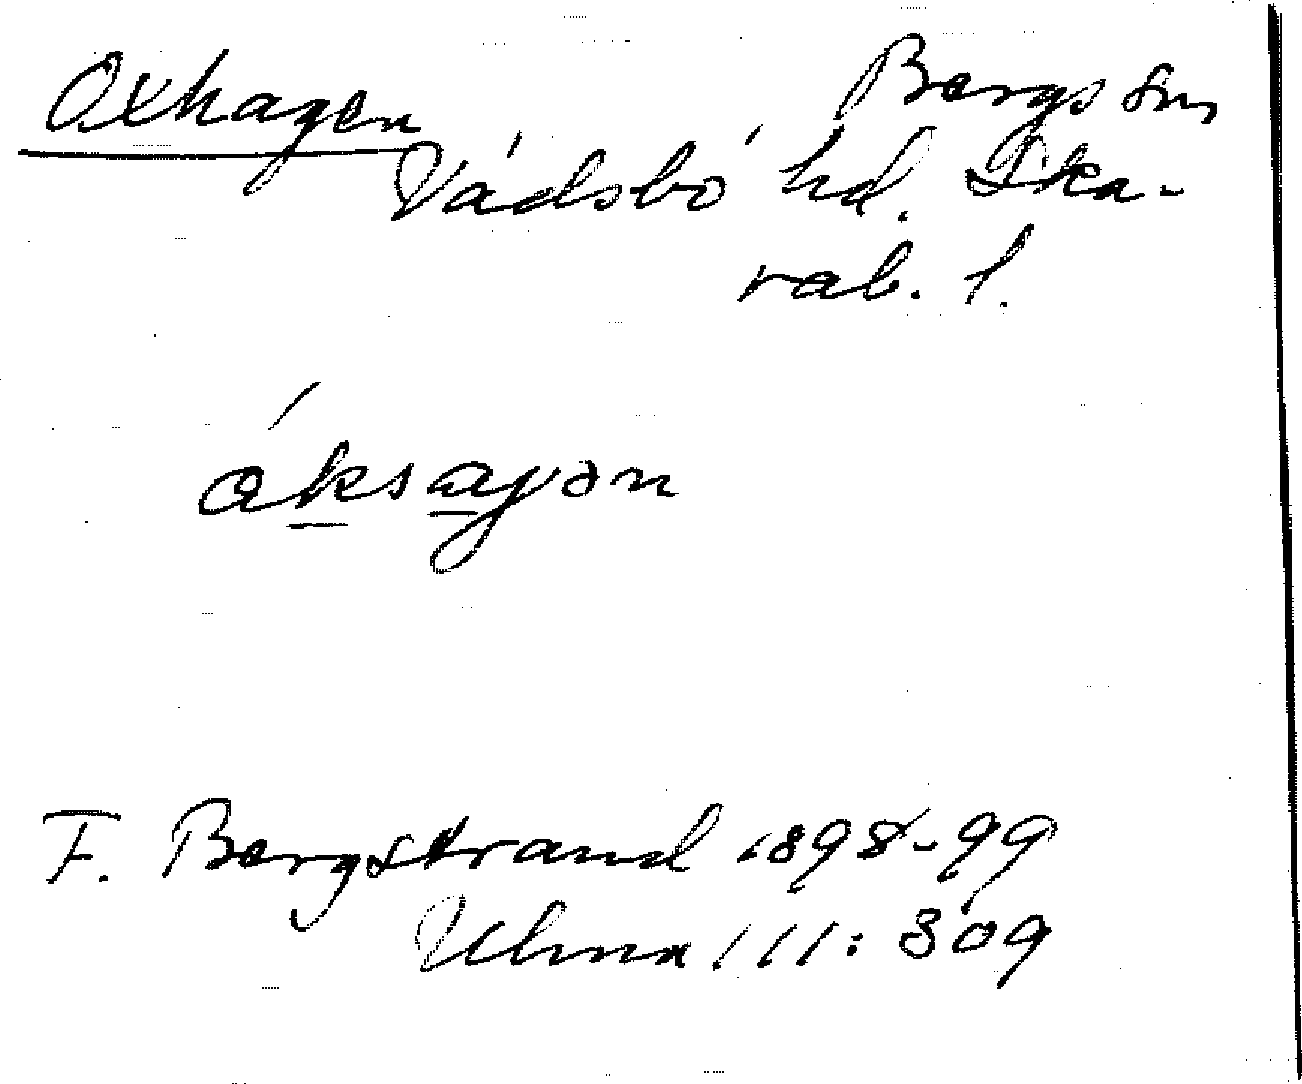 Oxhagen Bergs sn,
Vadsbo hd. Ska-
rab. l.
áksaγən
F. Bergstrand 1898-99
Ulma 111:309